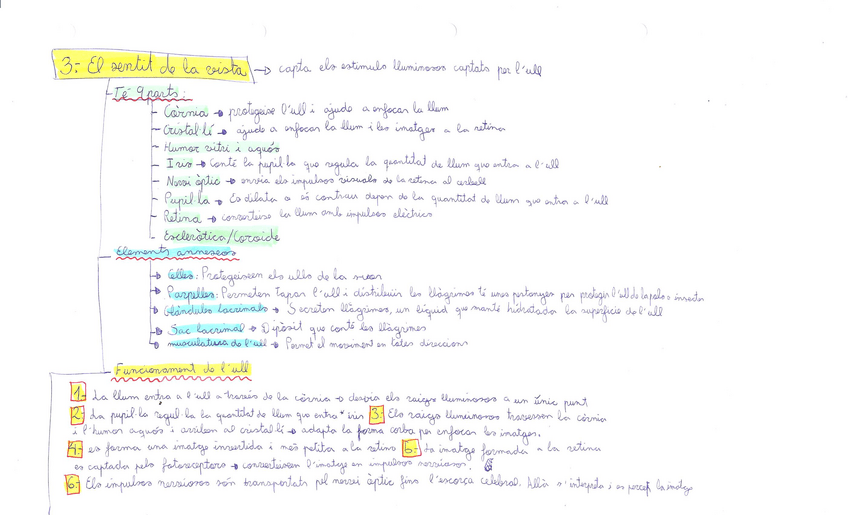 3.- El sentit de la vista → capta els estímuls lluminosos captats per l'ull
Té 9 parts:
- Còrnia → protegeix l'ull i ajuda a enfocar la llum
- Cristal·lí → ajuda a enfocar la llum i les imatges a la retina
- Humor vitri i aquós
- Iris → Conté la pupil·la que regula la quantitat de llum que entra a l'ull
- Nervi òptic → envia els impulsos visuals de la retina al cervell
- Pupil·la → Es dilata o es contrau depen de la quantitat de llum que entra a l'ull
- Retina → converteix la llum amb impulsos elèctrics
- Escleròtica/Coroide
Elements annexos
→ Celles: Protegeixen els ulls de la suor
→ Parpelles: Permeten tapar l'ull i distribuïr les llàgrimes té unes pestanyes per protegir l'ull de la pols o insectes
→ Glàndules lacrimals → Secreten llàgrimes, un líquid que manté hidratada la superfície de l'ull
→ Sac lacrimal → Dipòsit que conté les llàgrimes
→ musculatura de l'ull → Permet el moviment en totes direccions
Funcionament de l'ull
1.- La llum entra a l'ull a través de la còrnia → desvia els raigs lluminosos a un únic punt
2.- La pupil·la regul·la la quantitat de llum que entra * iris 3.- Els raigs lluminosos travessen la còrnia
i l'humor aquós i arriben al cristal·lí → adapta la forma corba per enfocar les imatges.
4.- es forma una imatge invertida i més petita a la retina 5.- La imatge formada a la retina
es captada pels fotoreceptors → converteixen l'imatge en impulsos nerviosos.
6.- Els impulsos nerviosos són transportats pel nervi òptic fins l'escorça celebral. Allà s'interpreta i es percep la imatge